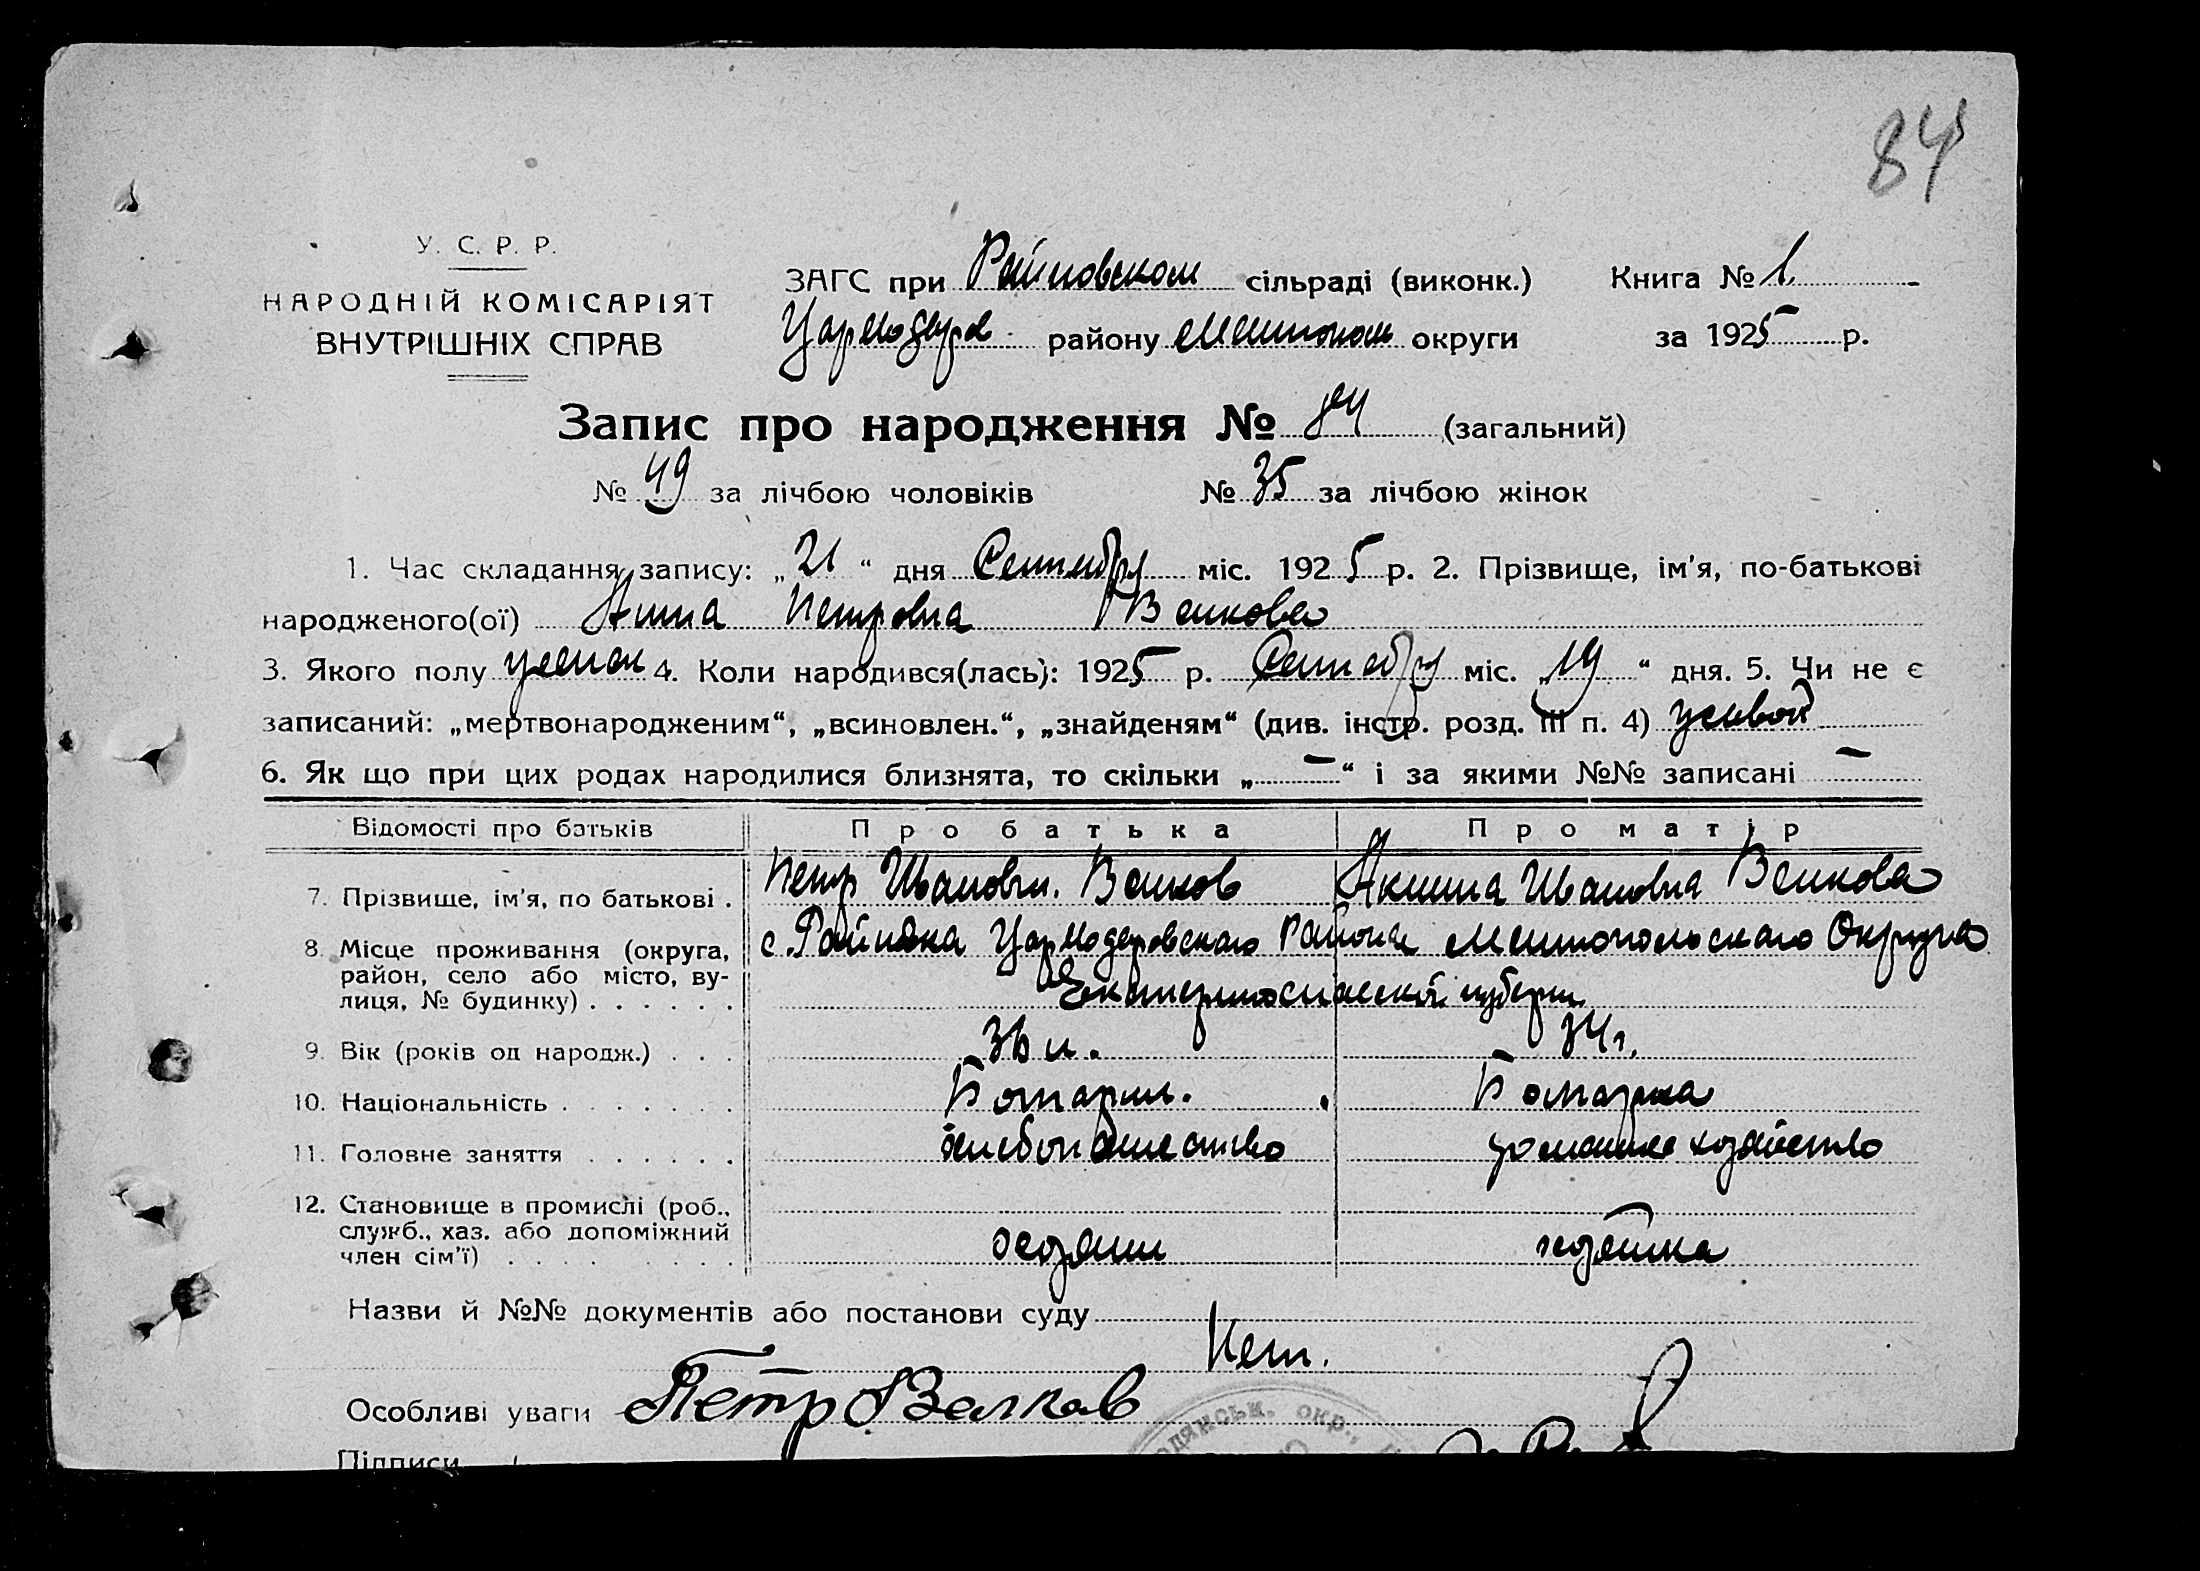 84
У. С. Р. Р.
НАРОДНІЙ КОМІСАРІЯТ
ВНУТРІШНІХ СПРАВ
ЗАГС при Райновском сільраді (виконк.) Книга № 1
району Мелитополь округи за 1925 р.
Запис про народження № 84 (загальний)
№ 49 за лічбою чоловіків № 35 за лічбою жінок
1. Час складання запису: „21“ дня Сентября міс. 1925 р. 2. Прізвище, ім'я, по-батькові
народженого(ої) Анна Петровна Волкова
3. Якого полу женск 4. Коли народився(лась): 1925 р. Сентября міс. „19“ дня. 5. Чи не є
записаний: „мертвонародженим“, „всиновлен.“, „знайденям“ (див. інстр. розд. III п. 4) живой
6. Як що при цих родах народилися близнята, то скільки „—“ і за якими №№ записані —
Відомості про батьків Про батька Про матір
7. Прізвище, ім'я, по батькові . Петр Иванович. Волков Акинна Ивановна Волкова
8. Місце проживання (округа, с. Райновка Цармодаровского Района Мелитопольского Округа
район, село або місто, ву-
лиця, № будинку) . . . . . . Екатеринославской губерни
9. Вік (років од народж.) . . . 36 л. 34 г.
10. Національність . . . . . . . Болгарин. Болгарка
11. Головне заняття . . . . . . хлебопашество домашнее хозяйство
12. Становище в промислі (роб.,
служб., хаз. або допоміжний
член сім'ї) . . . . . . . . . хозяин хозяйка
Назви й №№ документів або постанови суду
Нет.
Особливі уваги Петр Валков
Підписи